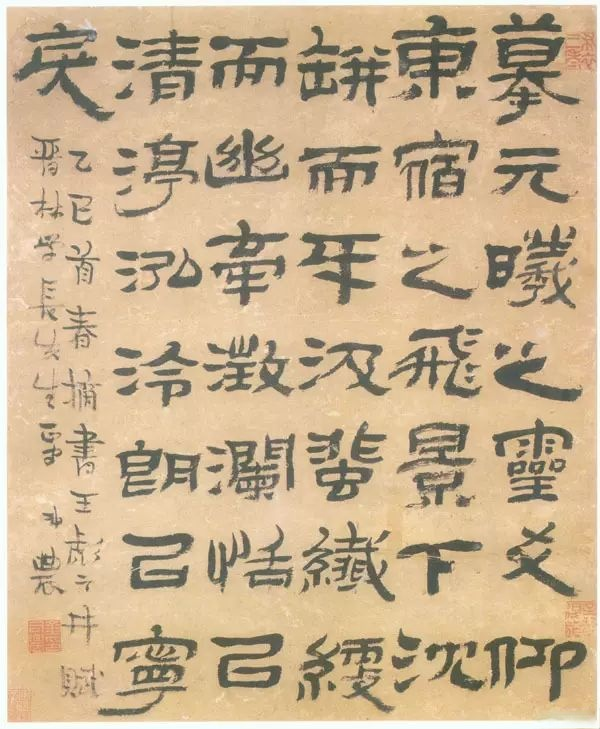 摹元曦之靈爻仰
東宿之飛景下沈
缾而牙汲蜚纖綆
而幽牽澂瀾恬己
清渟泓泠朗己寧
戾
乙巳首春摘書王彪之井賦
晋林學長先生正弟農